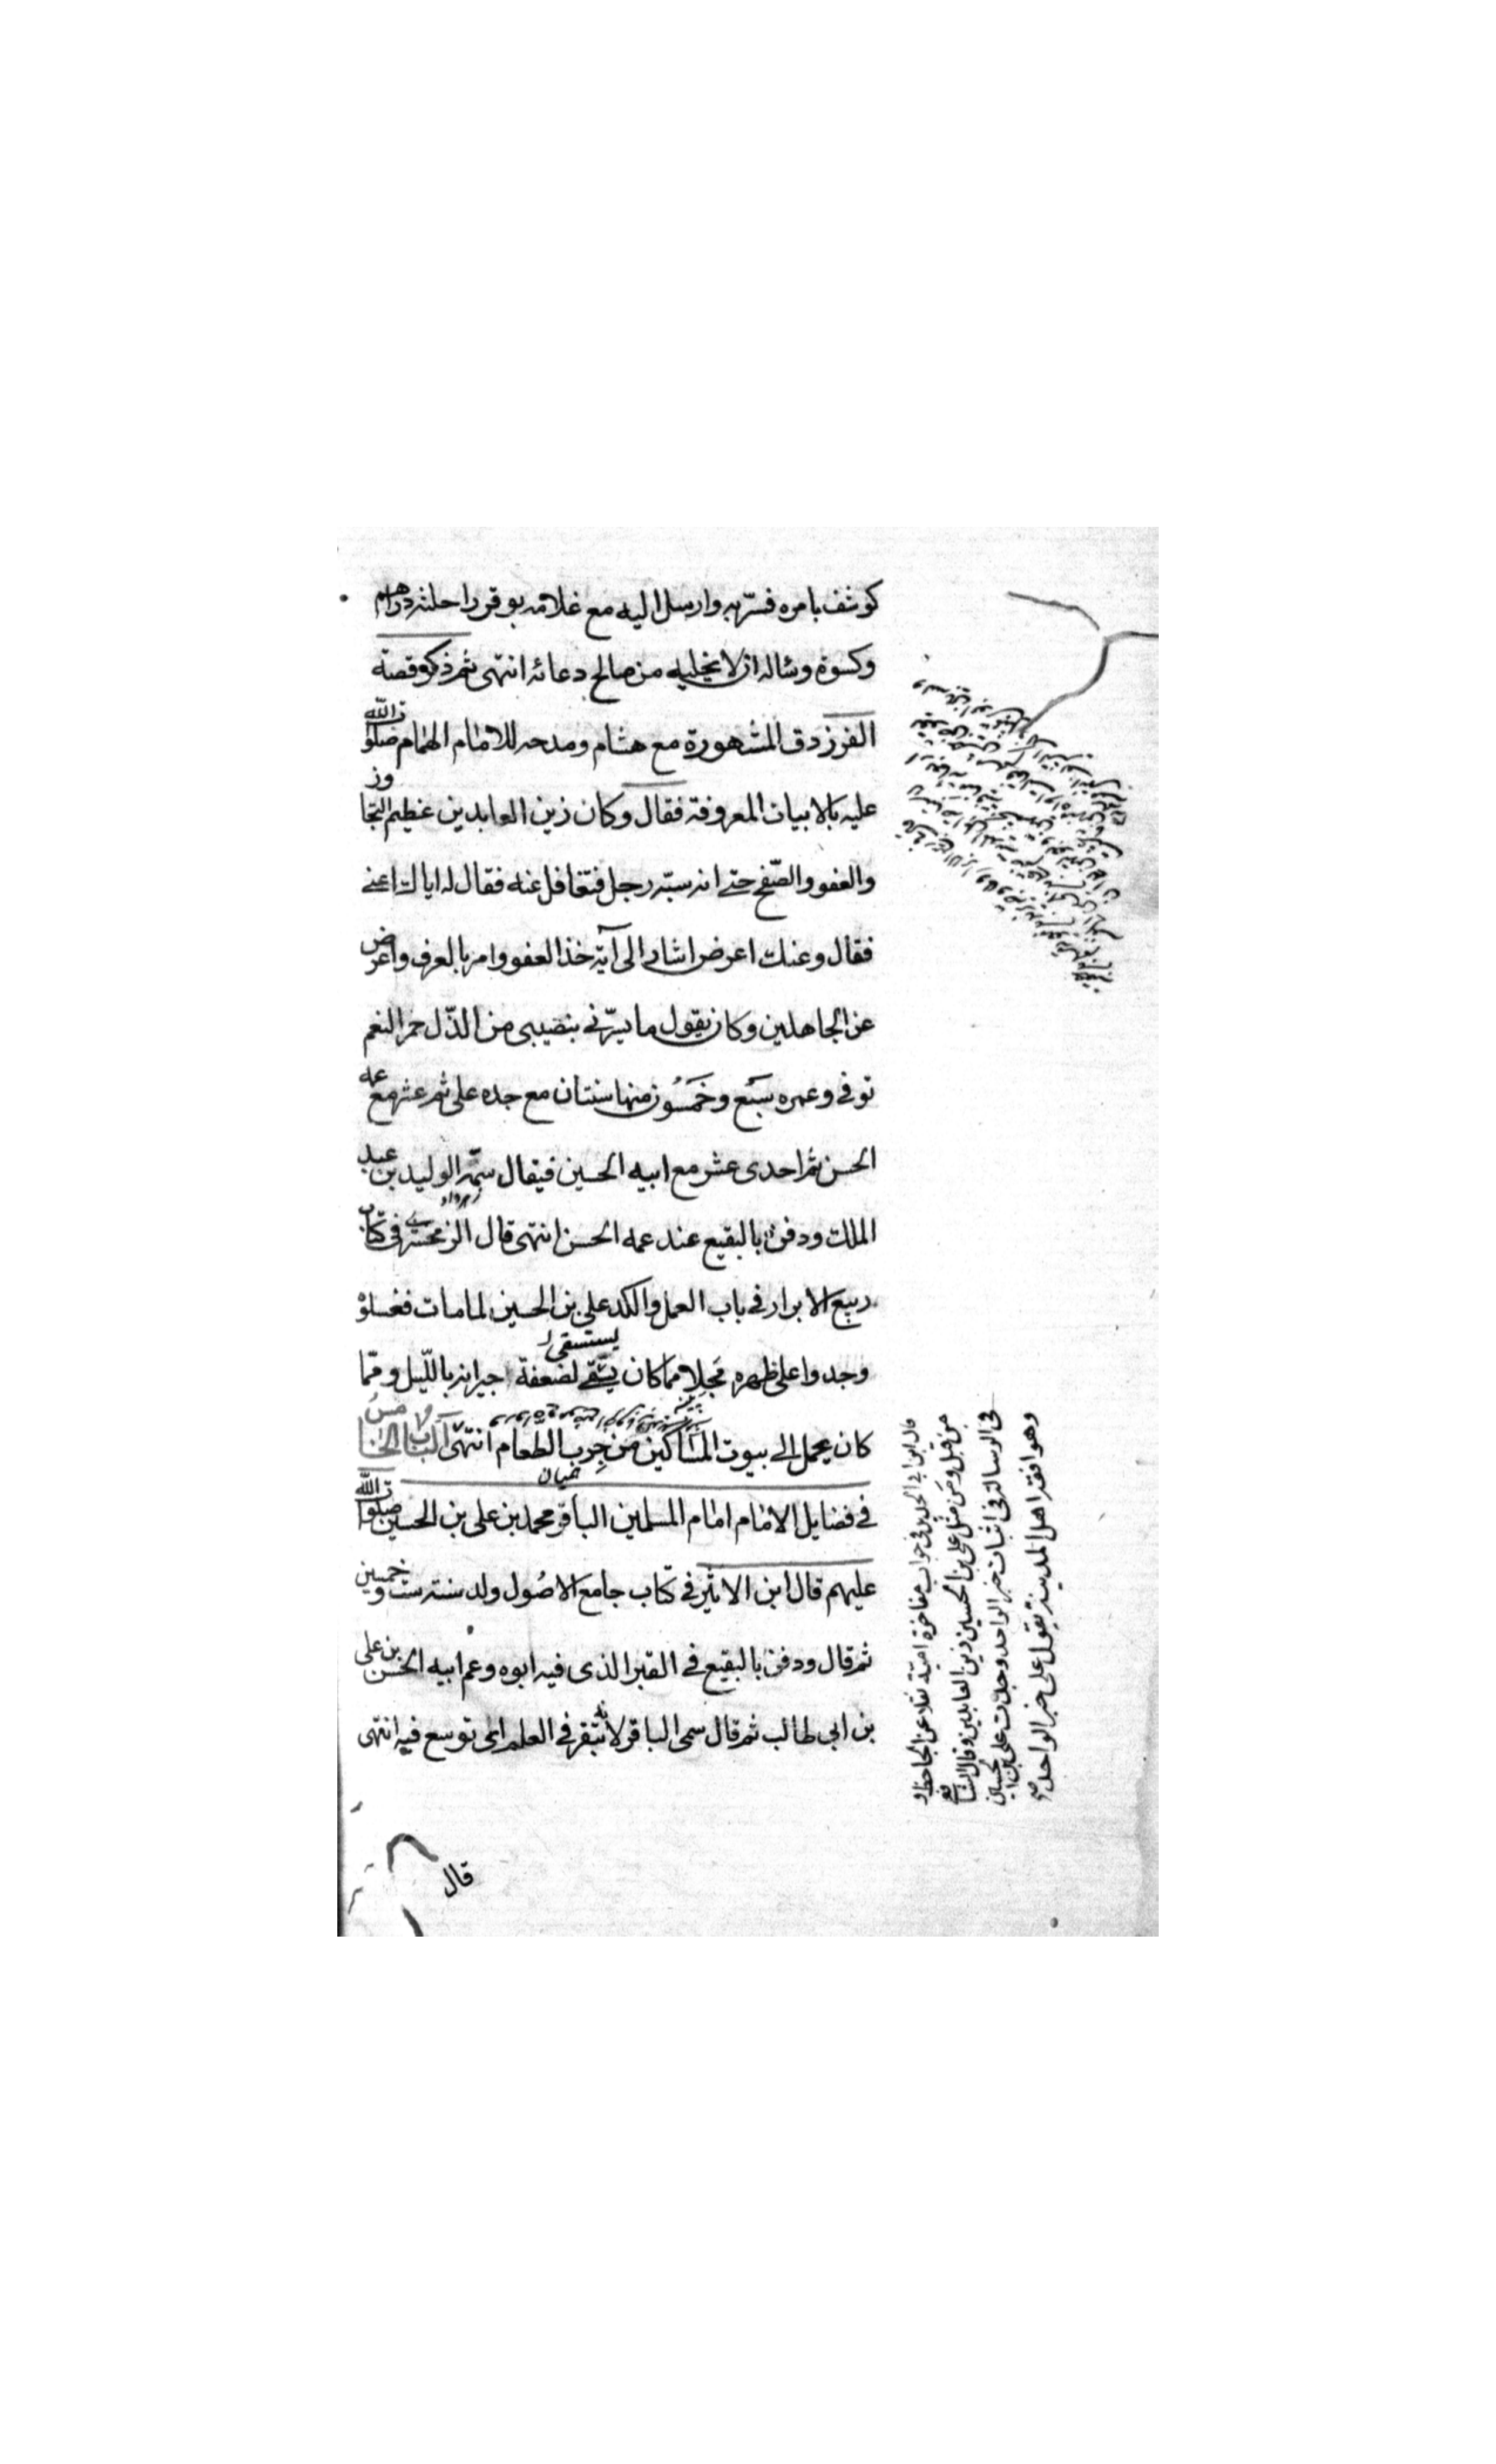 كوشف بامره فسرّ به وارسل اليه مع غلامه بوقر راحلته دراهم
وكسوة وساله ان لا يخليه من صالح دعائه انتهى ثم ذكر قصة
الفرزدق المشهورة مع هشام ومدحه للامام الهمام صلوات الله
عليه بالابيات المعروفة فقال وكان زين العابدين عظيم التجاوز
والعفو والصّفح حتى انه سبّه رجل فتغافل عنه فقال له اياك اعنى
فقال وعنك اعرض اشار الى آية خذ العفو وامر بالعرف واعرض
عن الجاهلين وكان يقول ما يسرّنى بنصيبى من الذّل حمر النعم
توفى وعمره سَبْع وخَمسُون منها سنتان مع جده على ثم عشر مع عمه
الحسن ثم احدى عشر مع ابيه الحسين فيقال سمّه الوليد بن عبد
الملك ودفن بالبقيع عند عمه الحسن انتهى قال الزمخشرى فى كتاب
ربيع الابرار فى باب العمل والكد على بن الحسين لما مات فغسلوه
وجدوا على ظهره مَجِلا مما كان يستقى لضعفة جيرانه باللّيل وممّا
كان يحمل الى بيوت المساكين من جِرب الطعام انتهى الباب الخامس
فى فضايل الامام امام المسلمين الباقر محمد بن على بن الحسين صلوات الله
عليهم قال ابن الاثير فى كتاب جامع الاصُول ولد سنة ست وخمسين
ثم قال ودفن بالبقيع فى القبر الذى فيه ابوه وعم ابيه الحسن بن على
بن ابى طالب ثم قال سمى الباقر لانه تبقر فى العلم اى توسع فيه انتهى
قال
قال ابن ابى الحديد فى جواب مفاخرة امية نقلا عن الجاحظ و
من قبل ومَن مثل على بن الحسين زين العابدين وقال الشافعى
فى الرسالة فى اثبات خبر الواحد وجدت على بن الحسين
وهو افقه اهل المدينة يقول على خبر الواحد